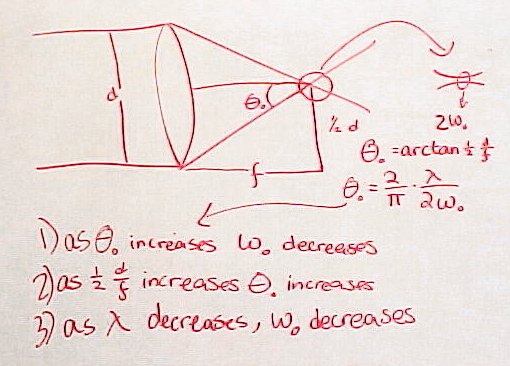 d
θ₀
½ d
f
2ω₀
θ₀ = arctan ½ d/f
θ₀ = 2/π · λ/2ω₀
1) as θ₀ increases ω₀ decreases
2) as ½ d/f increases θ₀ increases
3) as λ decreases, ω₀ decreases